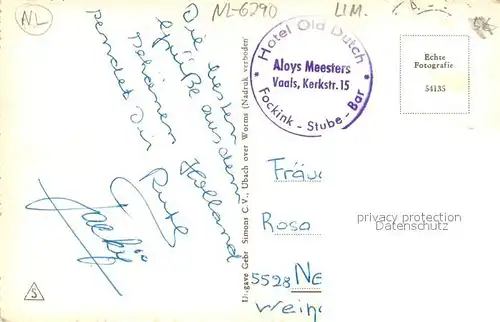 NL
NL-6290
LIM.
Die besten
Grüße aus dem
schönen Holland
sendet Dir
Ruth
Uitgave Gebr Simons C.V., Ubach over Worms (Nadruk verboden)
Hotel Old Dutch
Aloys Meesters
Vaals, Kerkstr. 15
Fockink - Stube - Bar
Echte
Fotografie
54135
Fräu
Rosa
privacy protection
Datenschutz
5528 Ne
Weih
S